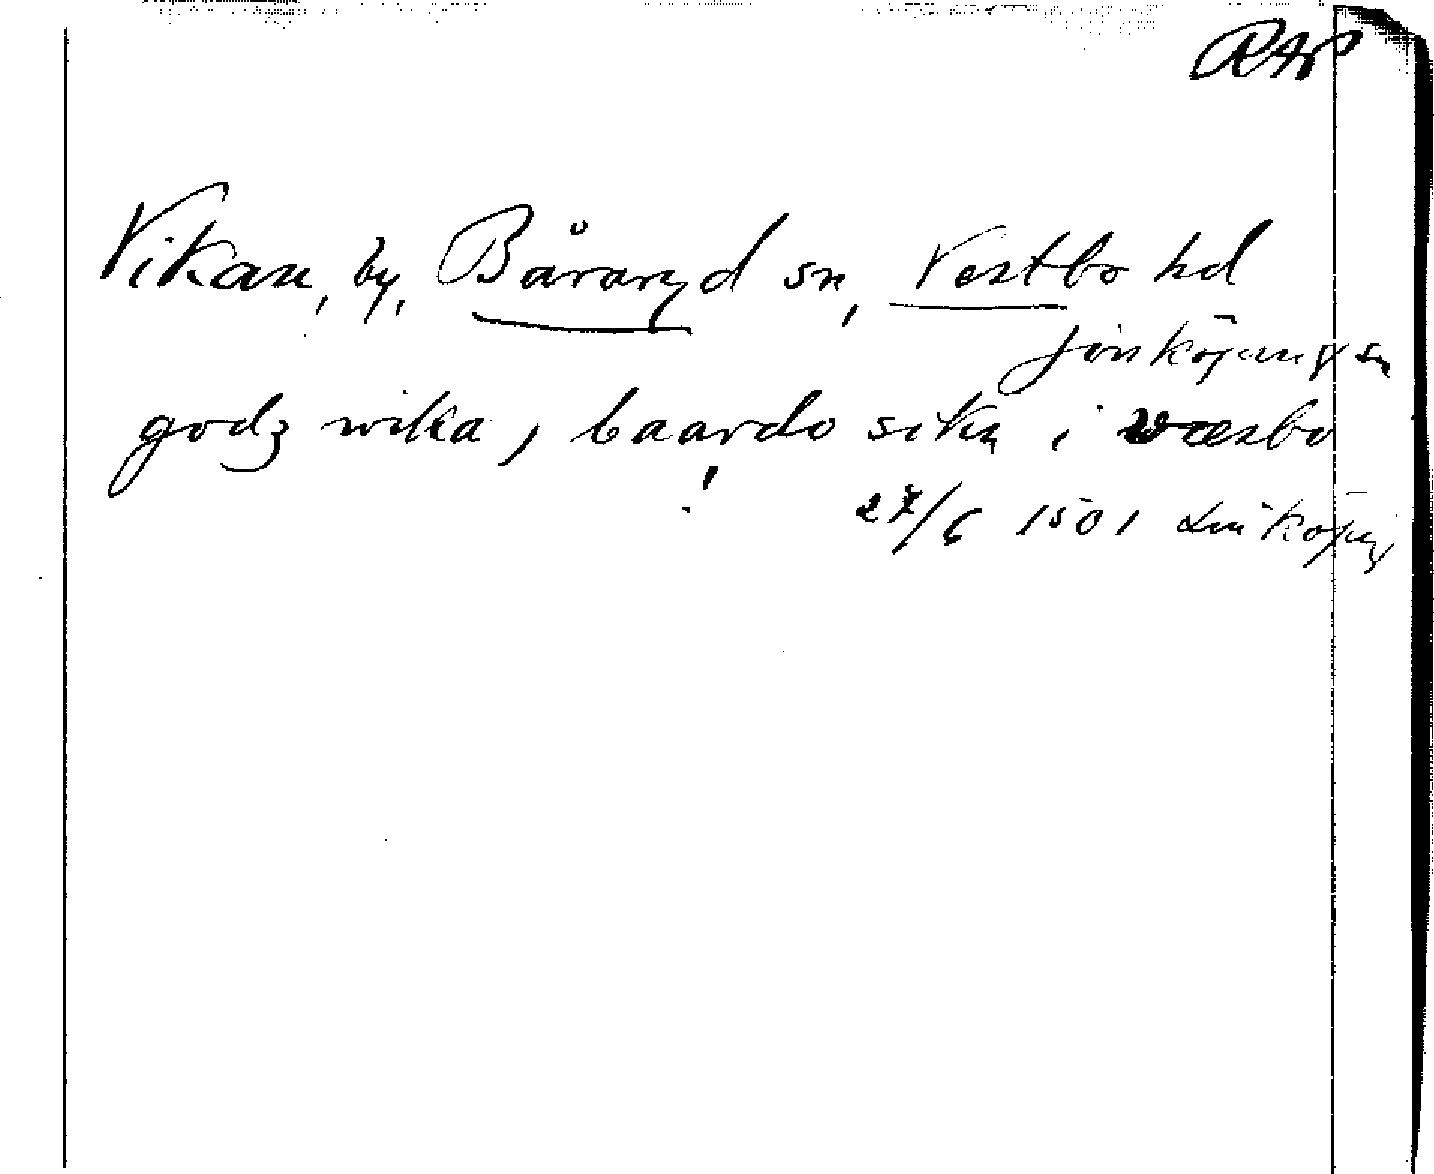 RAP
Vikan, by, Båraryd sn, Vestbo hd
Jönköpings
godz wika, baardo sikn i wæsbo
!
27/6 1501 Linköping